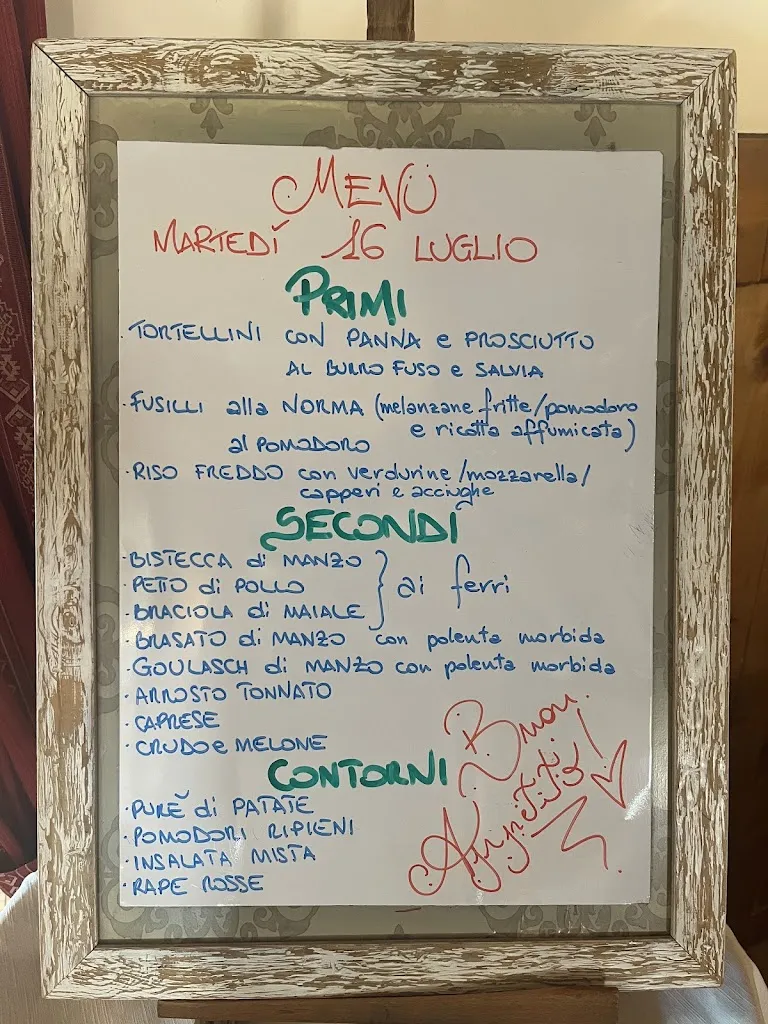 MENÙ
MARTEDÍ 16 LUGLIO
PRIMI
· TORTELLINI CON PANNA e PROSCIUTTO
AL BURRO FUSO e SALVIA
· FUSILLI alla NORMA (melanzane fritte/pomodoro
e ricotta affumicata)
al POMODORO
· RISO FREDDO con verdurine/mozzarella/
capperi e acciughe
SECONDI
· BISTECCA di MANZO
· PETTO di POLLO } ai ferri
· BRACIOLA di MAIALE
· BRASATO di MANZO con polenta morbida
· GOULASCH di MANZO con polenta morbida
· ARROSTO TONNATO
· CAPRESE
· CRUDO e MELONE
CONTORNI
· PURÈ di PATATE
· POMODORI RIPIENI
· INSALATA MISTA
· RAPE ROSSE
Buon
Appetito!